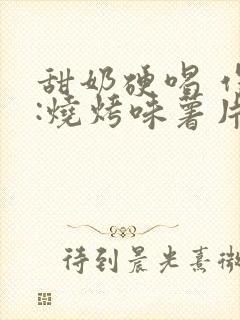 甜奶硬唱
:燒烤味薯片
待到晨光熹微